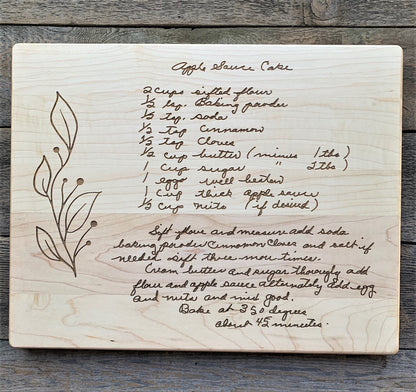 Apple Sauce Cake
2 cups sifted flour
½ tsp. Baking powder
½ tsp. soda
½ tsp Cinnamon
½ tsp Cloves
½ cup butter (minus 1tbs)
1 cup sugar " 2tbs)
1 egg well beaten
1 cup thick apple sauce
½ cup nuts (if desired)
Sift flour and measure add soda
baking powder Cinnamon Cloves and salt if
needed sift three more times.
Cream butter and sugar thorougly add
flour and apple sauce alternately add egg
and nuts and mix good.
Bake at 350 degrees
about 45 minutes.